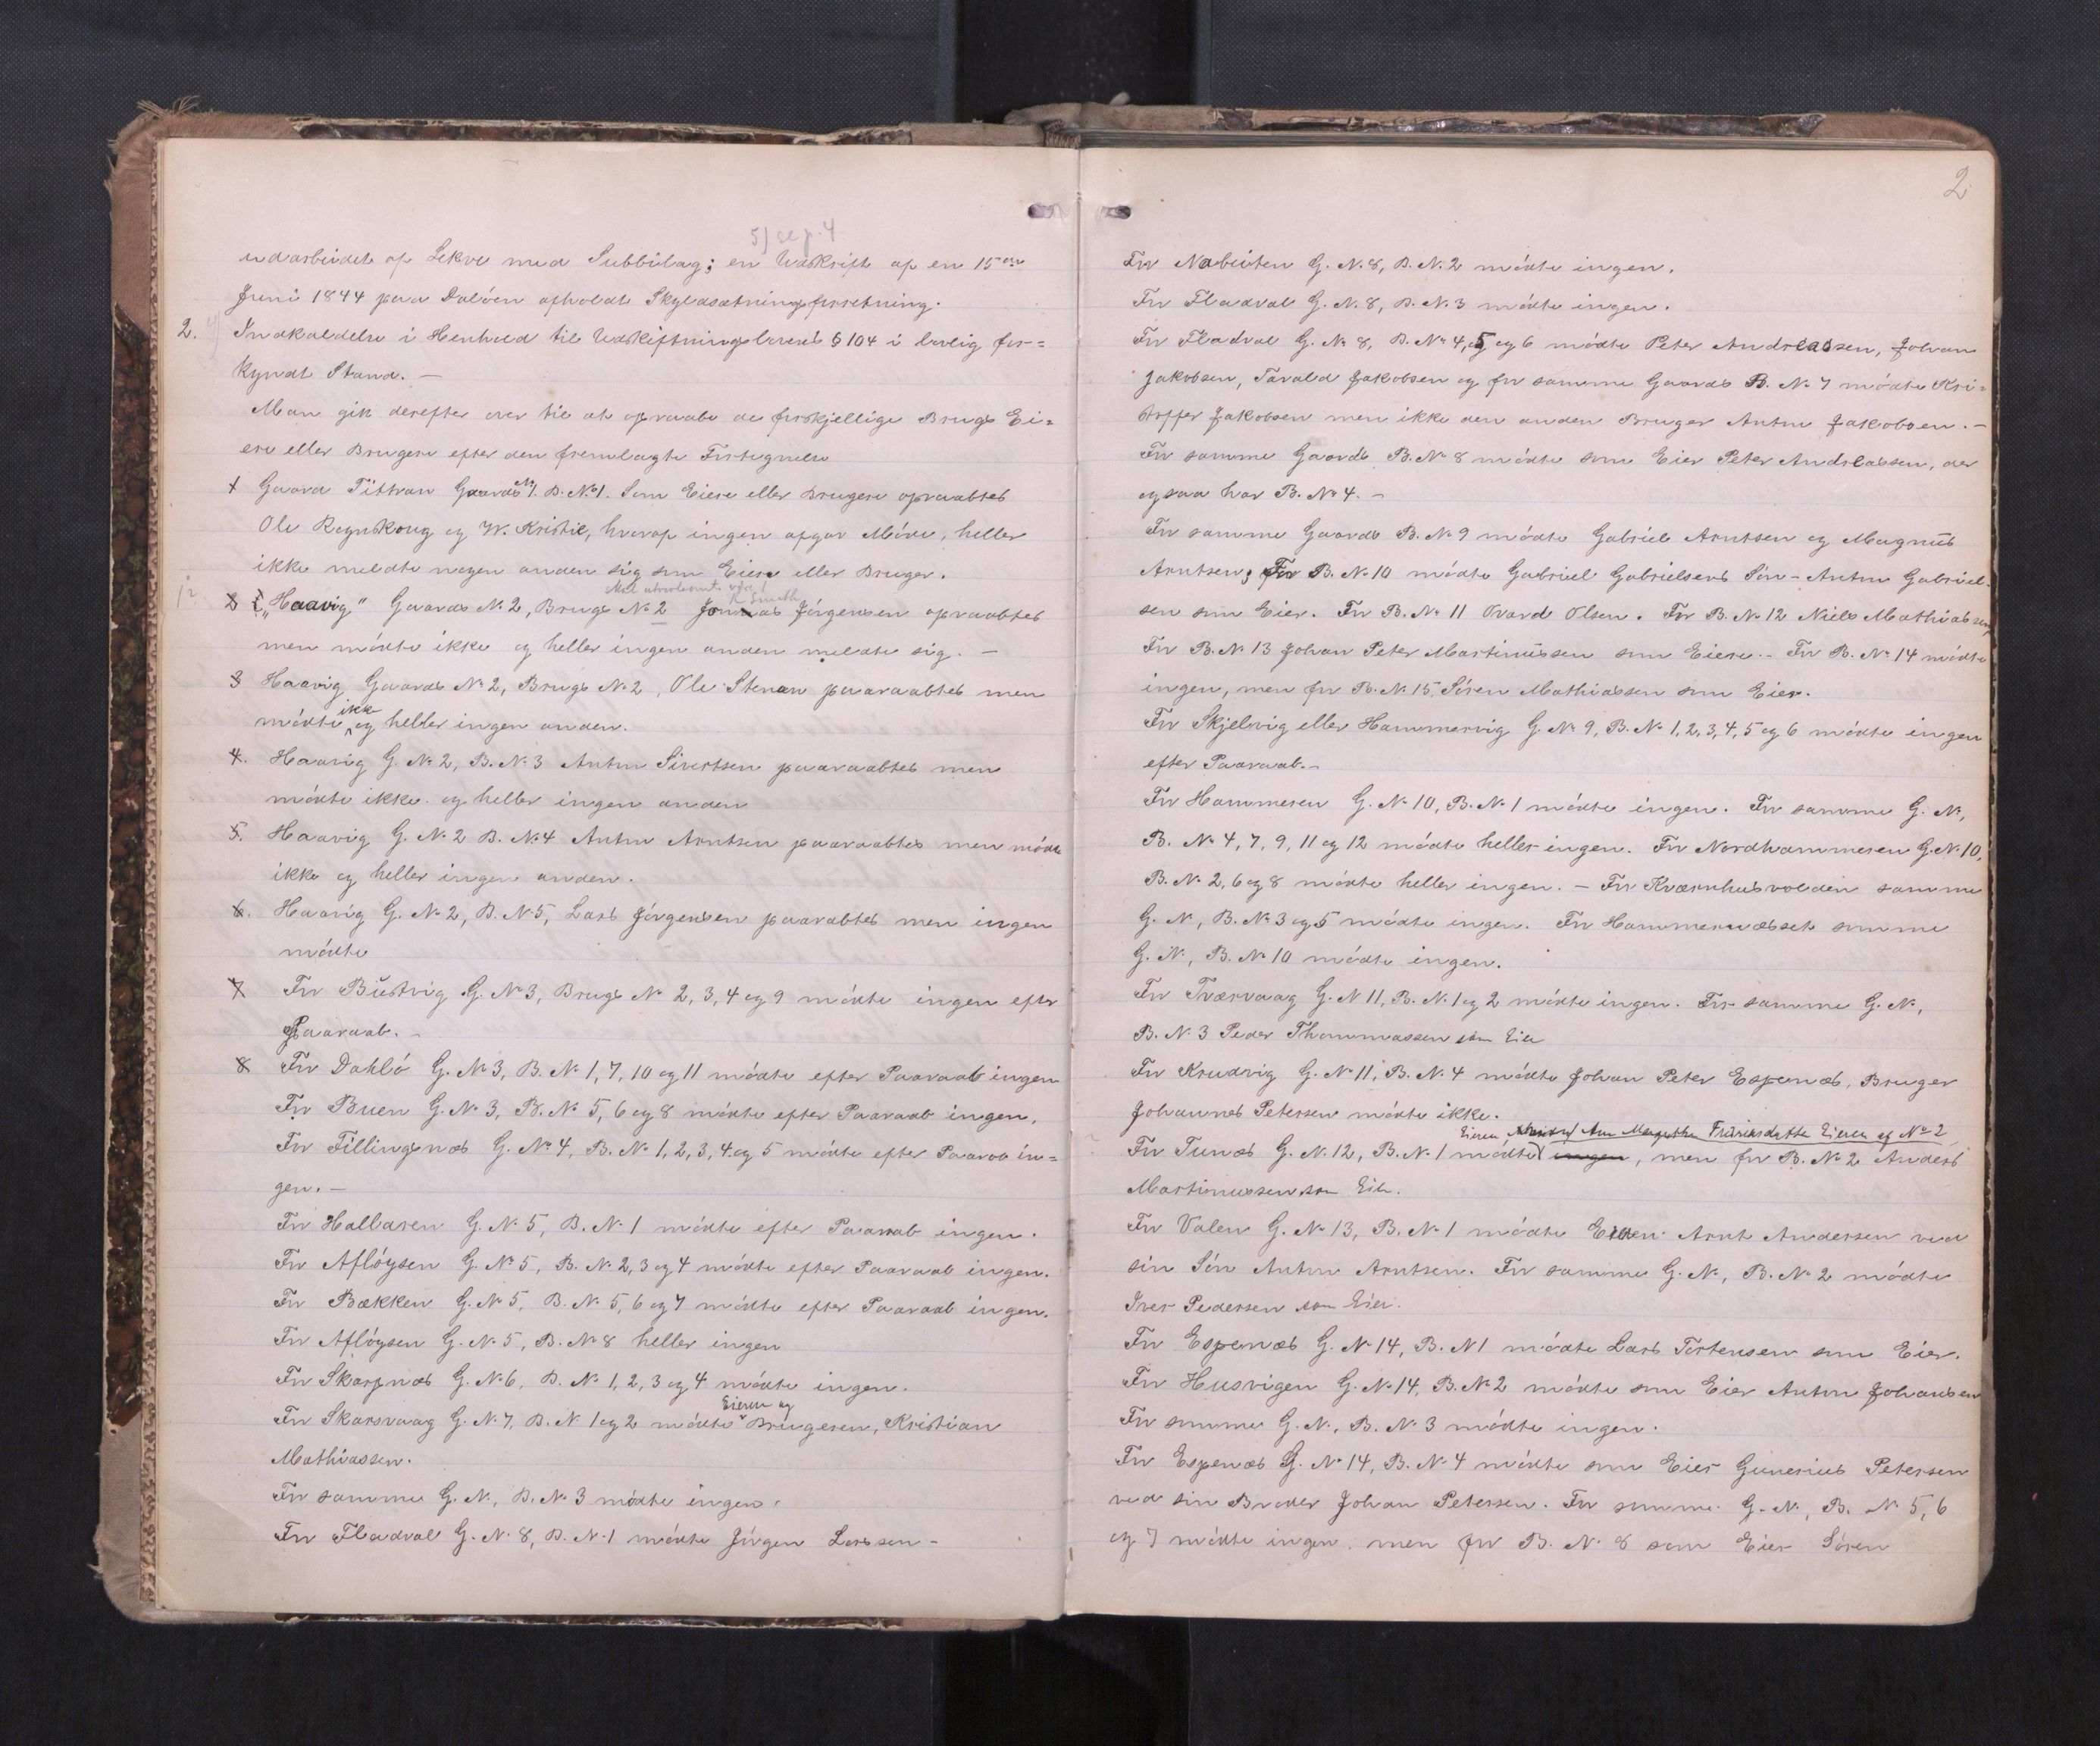 5) sep. 4
udarbeidet af Lekve med Subbilag; en Udskrift af en 15de
Juni 1844 paa Dalöen afholdt Skyldsætningsforretning.
2. Indkaldelse i Henhold til Udskiftningslovens § 104 i lovlig for=
kyndt Stand. —
Man gik derefter over til at opraabe de forskjellige Brugs Ei=
ere eller Brugere efter den fremlagte Fortegnelse
1 Gaard Titran Gaards No 1. B. No 1. Som Eiere eller Brugere opraabtes
Ole Rognskoug og W. Kristie, hvoraf ingen afgav Möde, heller
ikke meldte nogen anden sig som Eiere eller Bruger.
K Smith
2 "Haavig" Gaards No 2, Brugs No 2 Jonnas Jörgensen opraabtes
men mödte ikke og heller ingen anden meldte sig. —
3 Haavig Gaards No 2, Brugs No 2, Ole Stenan paaraabtes men
mödte ikke og heller ingen anden.
4. Haavig G. No 2, B. No 3 Anton Sivertsen paaraabtes men
mödte ikke og heller ingen anden
5. Haavig G. No 2 B. No 4 Anton Arntsen paaraabtes men mödte
ikke og heller ingen anden.
6. Haavig G. No 2, B. No 5, Lars Jörgensen paarabtes men ingen
mödte
7 For Bustvig G. No 3, Brugs No 2, 3, 4 og 9 mödte ingen efter
Paaraab. —
8 For Dahlö G. No 3, B. No 1, 7, 10 og 11 mödte efter Paaraab ingen
For Buen G. No 3, B. No 5, 6 og 8 mödte efter Paaraab ingen.
For Fillingsnæs G. No 4, B. No 1, 2, 3, 4 og 5 mödte efter Paarab in=
gen. —
For Hallaren G. No 5, B. No 1 mödte efter Paaraab ingen.
For Aflöysen G. No 5, B. No 2, 3 og 4 mödte efter Paaraab ingen.
For Bækken G. No 5, B. No 5, 6 og 7 mödte efter Paaraab ingen.
For Aflöysen G. No 5, B. No 8 heller ingen
For Skarpnæs G. No 6, B. No 1, 2, 3 og 4 mödte ingen.
For Skarsvaag G. No 7, B. No 1 og 2 mödte Eieren og Brugeren, Kristian
Mathiassen.
For samme G. No, B. No 3 mödte ingen.
For Fladval G. No 8, B. No 1 mödte Jörgen Larssen —
2
For Nabeiten G. No 8, B. No 2 mödte ingen.
For Fladval G. No 8, B. No 3 mödte ingen.
For Fladval G. No 8, B. No 4, 5 og 6 mödte Peter Andreassen, Johan
Jakobsen, Tarald Jakobsen og for samme Gaards B. No 7 mödte Kri=
stoffer Jakobsen men ikke den anden Bruger Anton Jakobsen. —
For samme Gaards B. No 8 mödte som Eier Peter Andreassen, der
ogsaa har B. No 4. —
For samme Gaards B. No 9 mödte Gabriel Arntsen og Magnus
Arntsen; For B. No 10 mödte Gabriel Gabrielsens Sön - Anton Gabriel-
sen som Eier. For B. No 11 Ovard Olsen. For B. No 12 Niels Mathiassen
For B. No 13 Johan Peter Martinussen som Eiere. - For B. No 14 mödte
ingen, men for B. No 15 Sören Mathiassen som Eier.
For Skjelvig eller Hammervig G. No 9, B. No 1, 2, 3, 4, 5 og 6 mödte ingen
efter Paaraab. —
For Hammeren G. No 10, B. No 1 mödte ingen. For samme G. No,
B. No 4, 7, 9, 11 og 12 mödte heller ingen. For Nordhammeren G. No 10,
B. No 2, 6 og 8 mödte heller ingen. — For Kværnhusvolden samme
G. No, B. No 3 og 5 mödte ingen. For Hammernæsset samme
G. No, B. No 10 mödte ingen.
For Tværvaag G. No 11, B. No 1 og 2 mödte ingen. For samme G. No,
B. No 3 Peder Thommassen som Eier
For Krudvig G. No 11, B. No 4 mödte Johan Peter Espenæs, Bruger
Johannes Petersen mödte ikke.
Eieren Ane Margrethe Fredriksdatter Eieren af No 2
For Tunæs G. No 12, B. No 1 mödte ingen, men for B. No 2 Anders
Martinussen som Eier.
For Valen G. No 13, B. No 1 mödte Eieren Arnt Andersen ved
sin Sön Anton Arntsen. For samme G. No, B. No 2 mödte
Iver Pedersen som Eier.
For Espenæs G. No 14, B. No 1 mödte Lars Tortensen som Eier.
For Husvigen G. No 14, B. No 2 mödte som Eier Anton Johansen
For samme G. No, B. No 3 mödte ingen.
For Espenæs G. No 14, B. No 4 mödte som Eier Gunerius Petersen
ved sin Broder Johan Petersen. For samme G. No, B. No 5, 6
og 7 mödte ingen, men for B. No 8 som Eier Sören